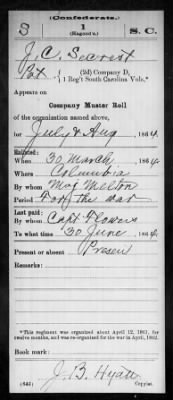 (Confederate.)
S 1 S. C.
(Hagood's.)
J. C. Secrist
Pvt., (2d) Company D,
1 Reg't South Carolina Vols.*
Appears on
Company Muster Roll
of the organization named above,
for July & Aug, 1864.
Enlisted:
When 30 March, 186
Where Columbia
By whom Maj Melton
Period For the war
Last paid:
By whom Capt Flowers
To what time 30 June, 1864.
Present or absent Present
Remarks:
*This regiment was organized about April 12, 1861, for
twelve months, and was re-organized for the war in April, 1862.
Book mark:
J. B. Hyatt
(642) Copyist.